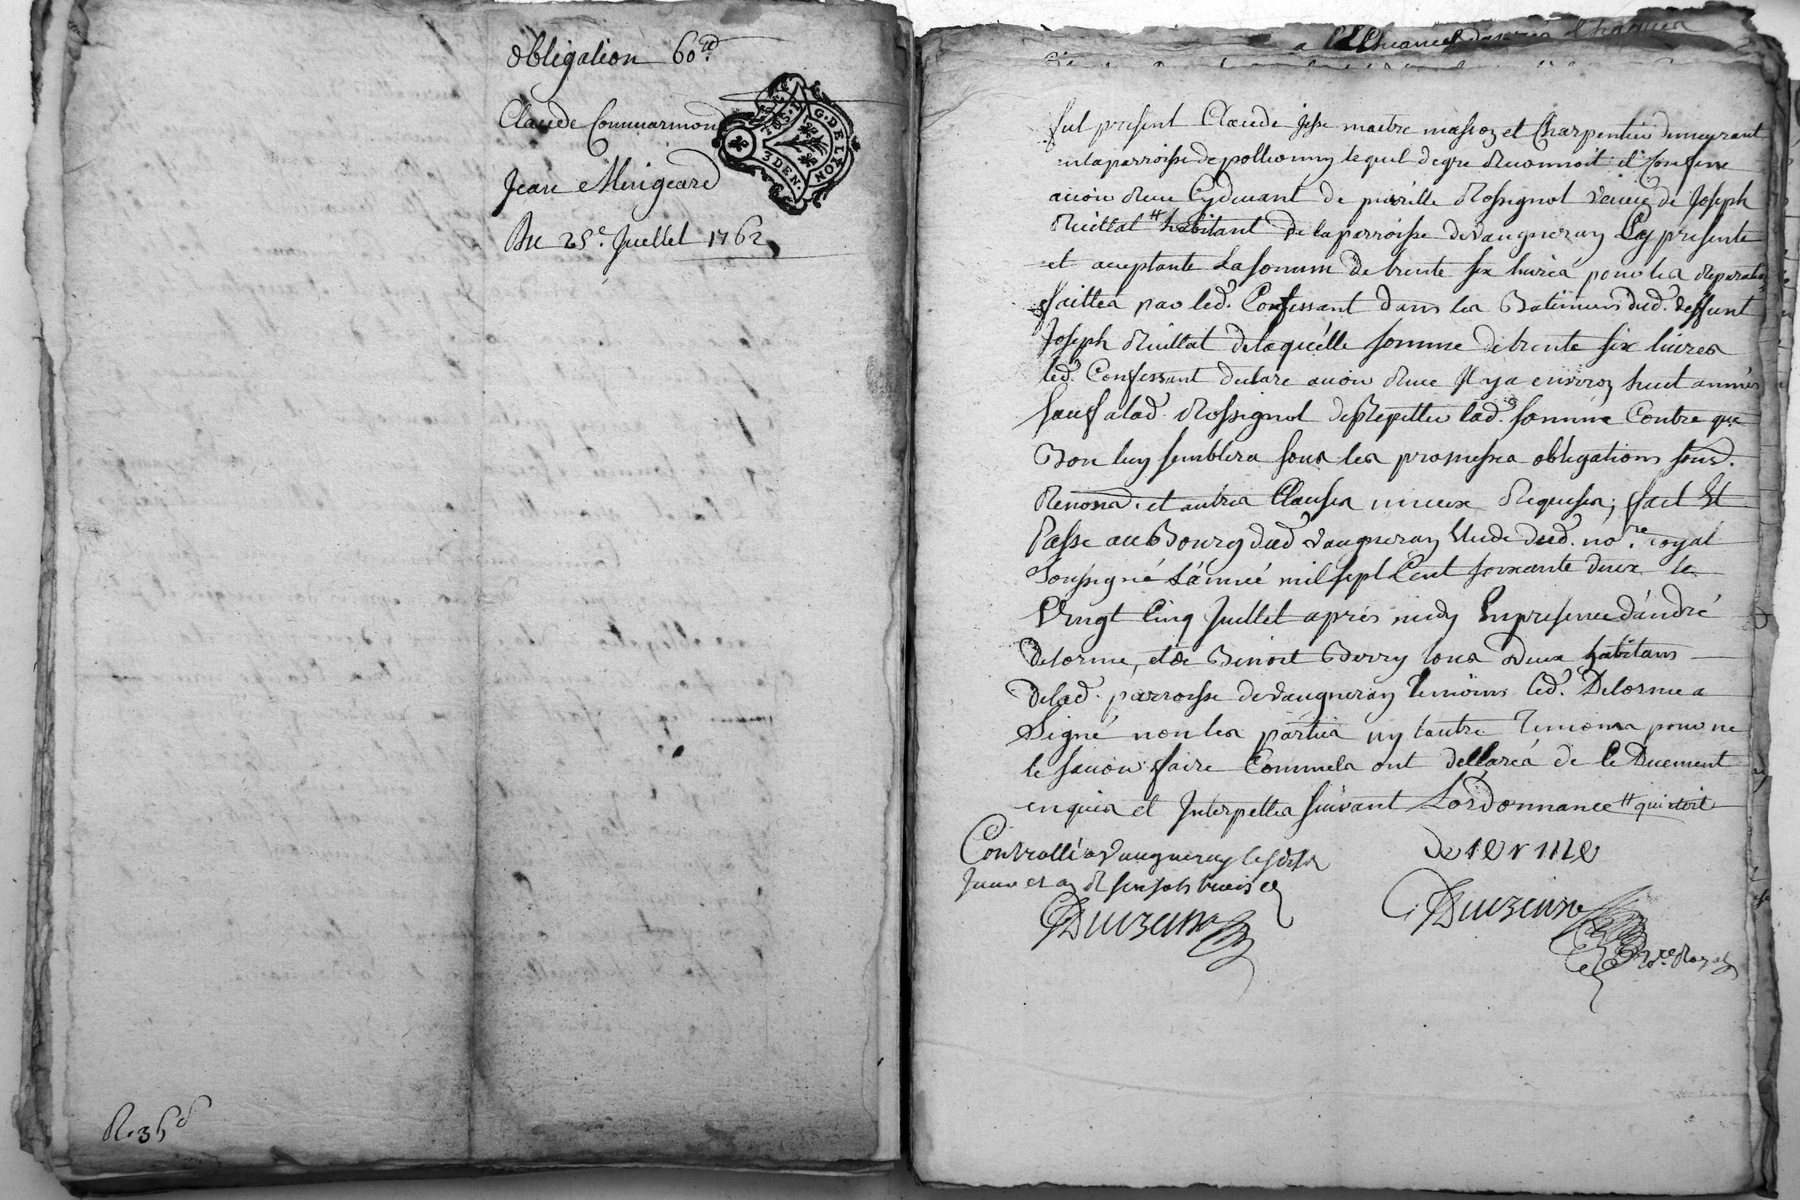 obligation 60ᵗᵗ
Claude Commarmond
Jean Mirigeard
Du 25ᵉ Juillet 1762
G. DE LYON
3 DEN.
R. 36 ˢ
fut present Claude Jesse maitre masson et Charpentier demeurant
en la parroisse de pollionny lequel de gre Reconnoit et Confesse
avoir Reçu Cydevant de pierrette Rossignol veuve de Joseph
Ruillat # habitant de la parroisse de Vaugneray Cy presente
et acceptante La somme de trente six livres pour les Reparations
faittes par led. Confessant dans les Batimens dud. deffunt
Joseph Ruillat de laquelle somme de trente six livres
led. Confessant declare avoir Reçu Il y a environ huit années
sauf a lad. Rossignol de Repetter lad. somme Contre qui
Bon luy semblera sous les promesses obligations sousd.
Renond. et autres Clauses mieux Requises; fait Et
Passé au Bourg dud. Vaugneray Etude dud. noʳᵉ royal
soussigné L'année mil sept Cent soixante deux le
Vingt Cinq Juillet après midy En presence d'andré
delorme, et de Benoit Berry tous deux habitans
de lad. parroisse de Vaugneray temoins led. Delorme a
Signé non les parties ny l'autre temoins pour ne
le savoir faire Comme la ont declarés de Ce Duement
enquis et Interpellés suivant L'ordonnance # qui etoit
Controllé a Vaugneray le
Jour et an R six sols trois d
delorme
Duizeinne
Duizeinne
Noʳᵉ Royal